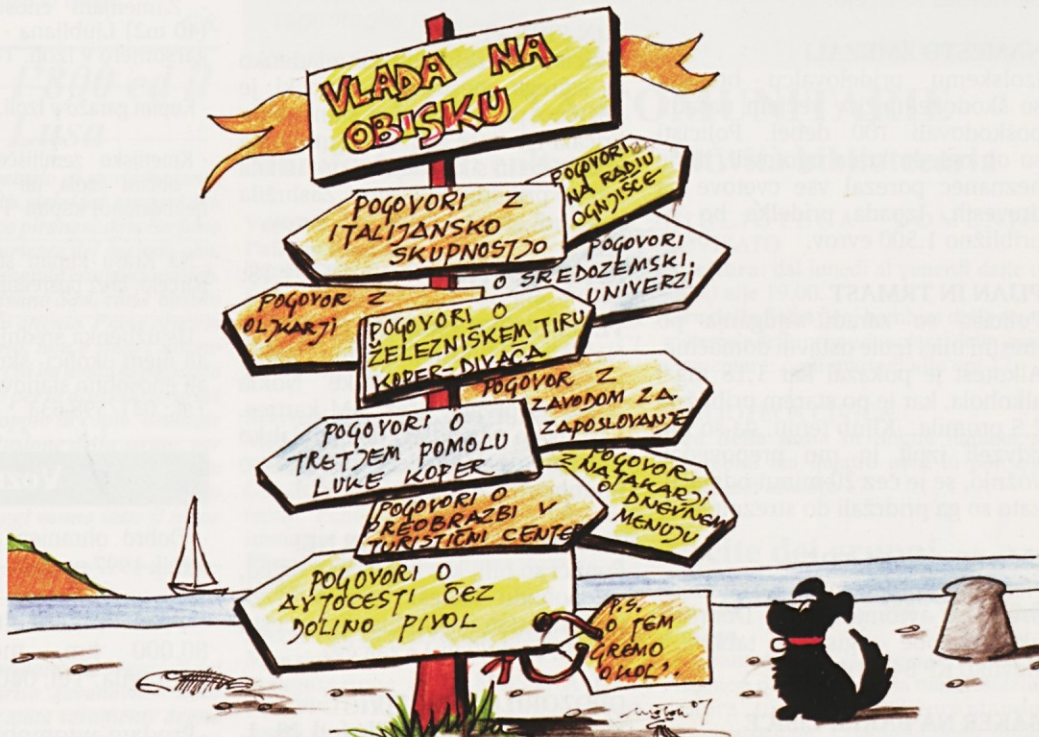 VLADA NA
OBISKU
POGOVORI
NA RADIU
OGNJIŠČE
POGOVORI Z
ITALIJANSKO
SKUPNOSTJO
POGOVORI
O SREDOZEMSKI
UNIVERZI
POGOVOR Z
OLJKARJI
POGOVORI O
ŽELEZNIŠKEM TIRU
KOPER-DIVAČA
POGOVOR Z
ZAVODOM ZA
ZAPOSLOVANJE
POGOVORI O
TRETJEM POMOLU
LUKE KOPER
POGOVOR
Z NATAKARJI
O DNEVNEM
MENUJU
POGOVORI O
PREOBRAZBI V
TURISTIČNI CENTER
POGOVORI O
AVTOCESTI ČEZ
DOLINO PIVOL
P.S.
O TEM
GREMO
OKOL'.